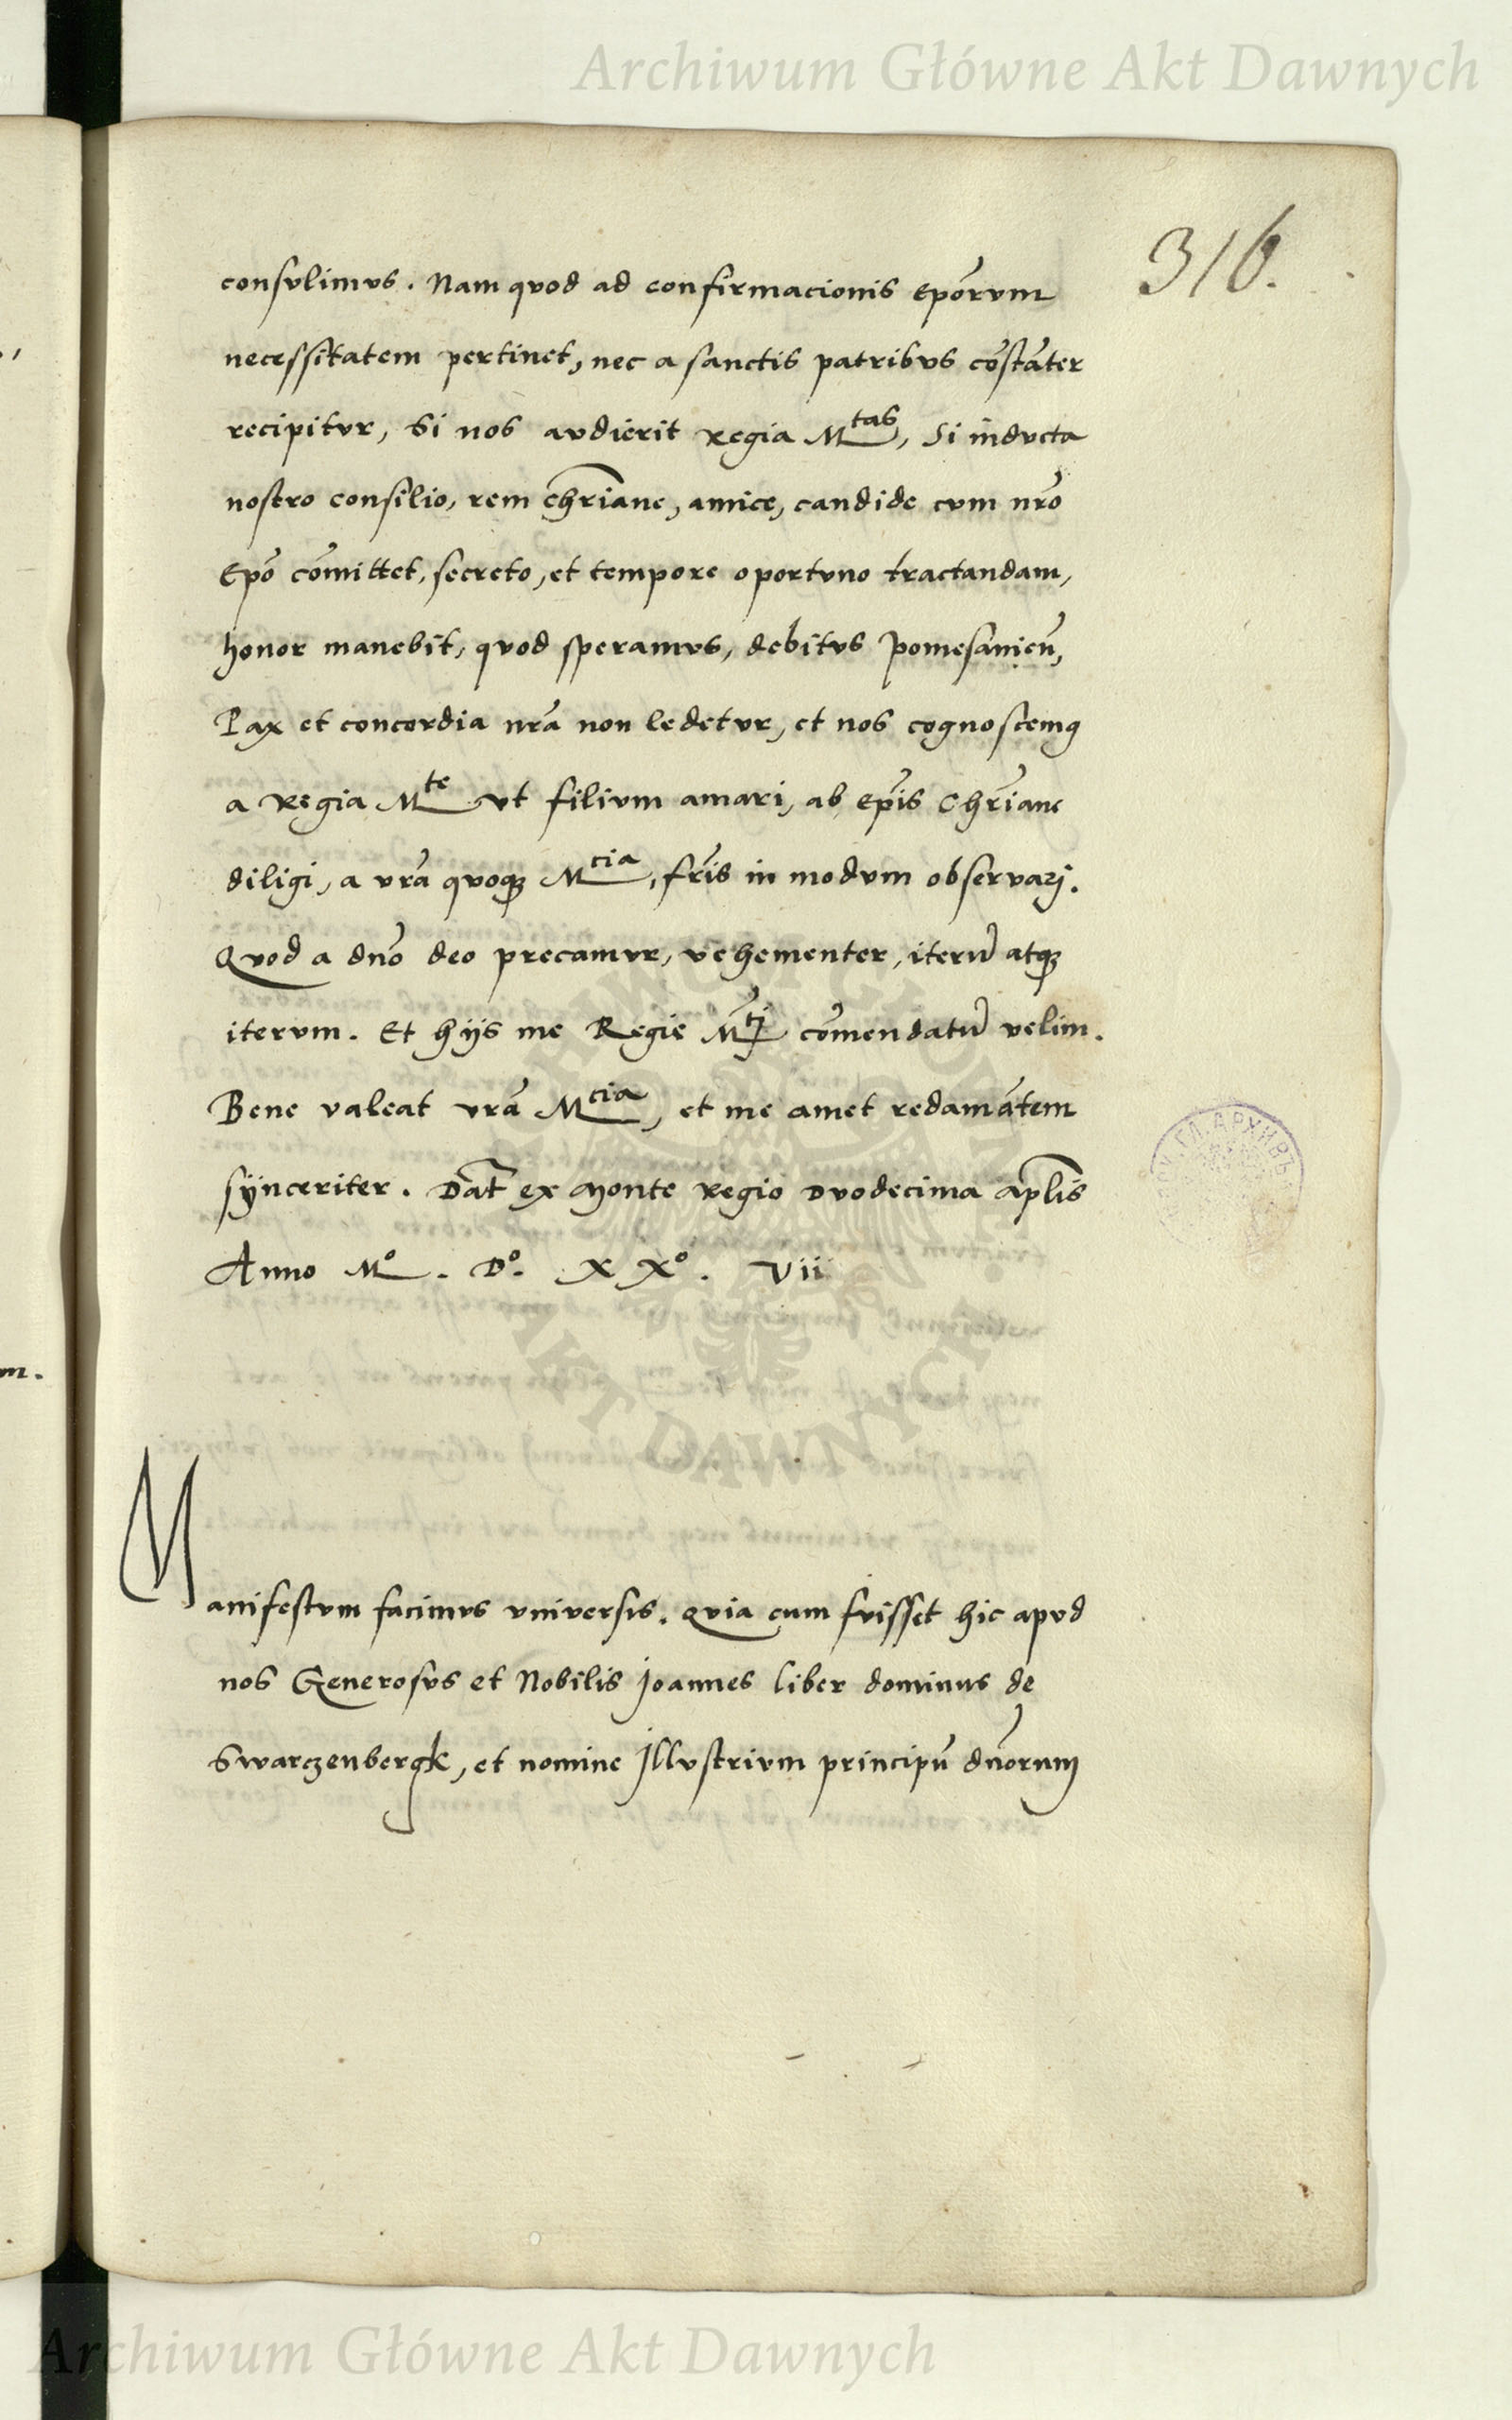 Archiwum Główne Akt Dawnych
316.
consulimus. Nam quod ad confirmacionis Epōrum
necessitatem pertinet, nec a sanctis patribus cōstāter
recipitur, Si nos audierit regia Mtas, Si inducta
nostro consilio, rem chriāne, amice, candide cum nrō
Epō cōmittet, secreto, et tempore oportuno tractandam,
honor manebit, quod speramus, debitus Pomesanien̄,
Pax et concordia nrā non ledetur, et nos cognoscemꝰ
a Regia Mte ut filium amari, ab Ep̄is Chr̄iane
diligi, a vrā quoqꝫ Mcia, fr̄is in modum observari.
Quod a dnō deo precamur, vehementer, iterū atqꝫ
iterum. Et hijs me Regie Mtj cōmendatū velim.
Bene valeat vrā Mcia, et me amet redamātem
synceriter. Dat̄ ex Monte regio Duodecima ap̄lis
Anno Mº. Dº. XXº. Vii
Manifestum facimus universis. Quia cum fuisset hic apud
nos Generosus et Nobilis Joannes liber dominus de
Swarczenbergk, et nomine Illustrium principū dn̄orum
ГЛ. АРХИВЪ
ARCHIWUM GŁÓWNE AKT DAWNYCH
Archiwum Główne Akt Dawnych